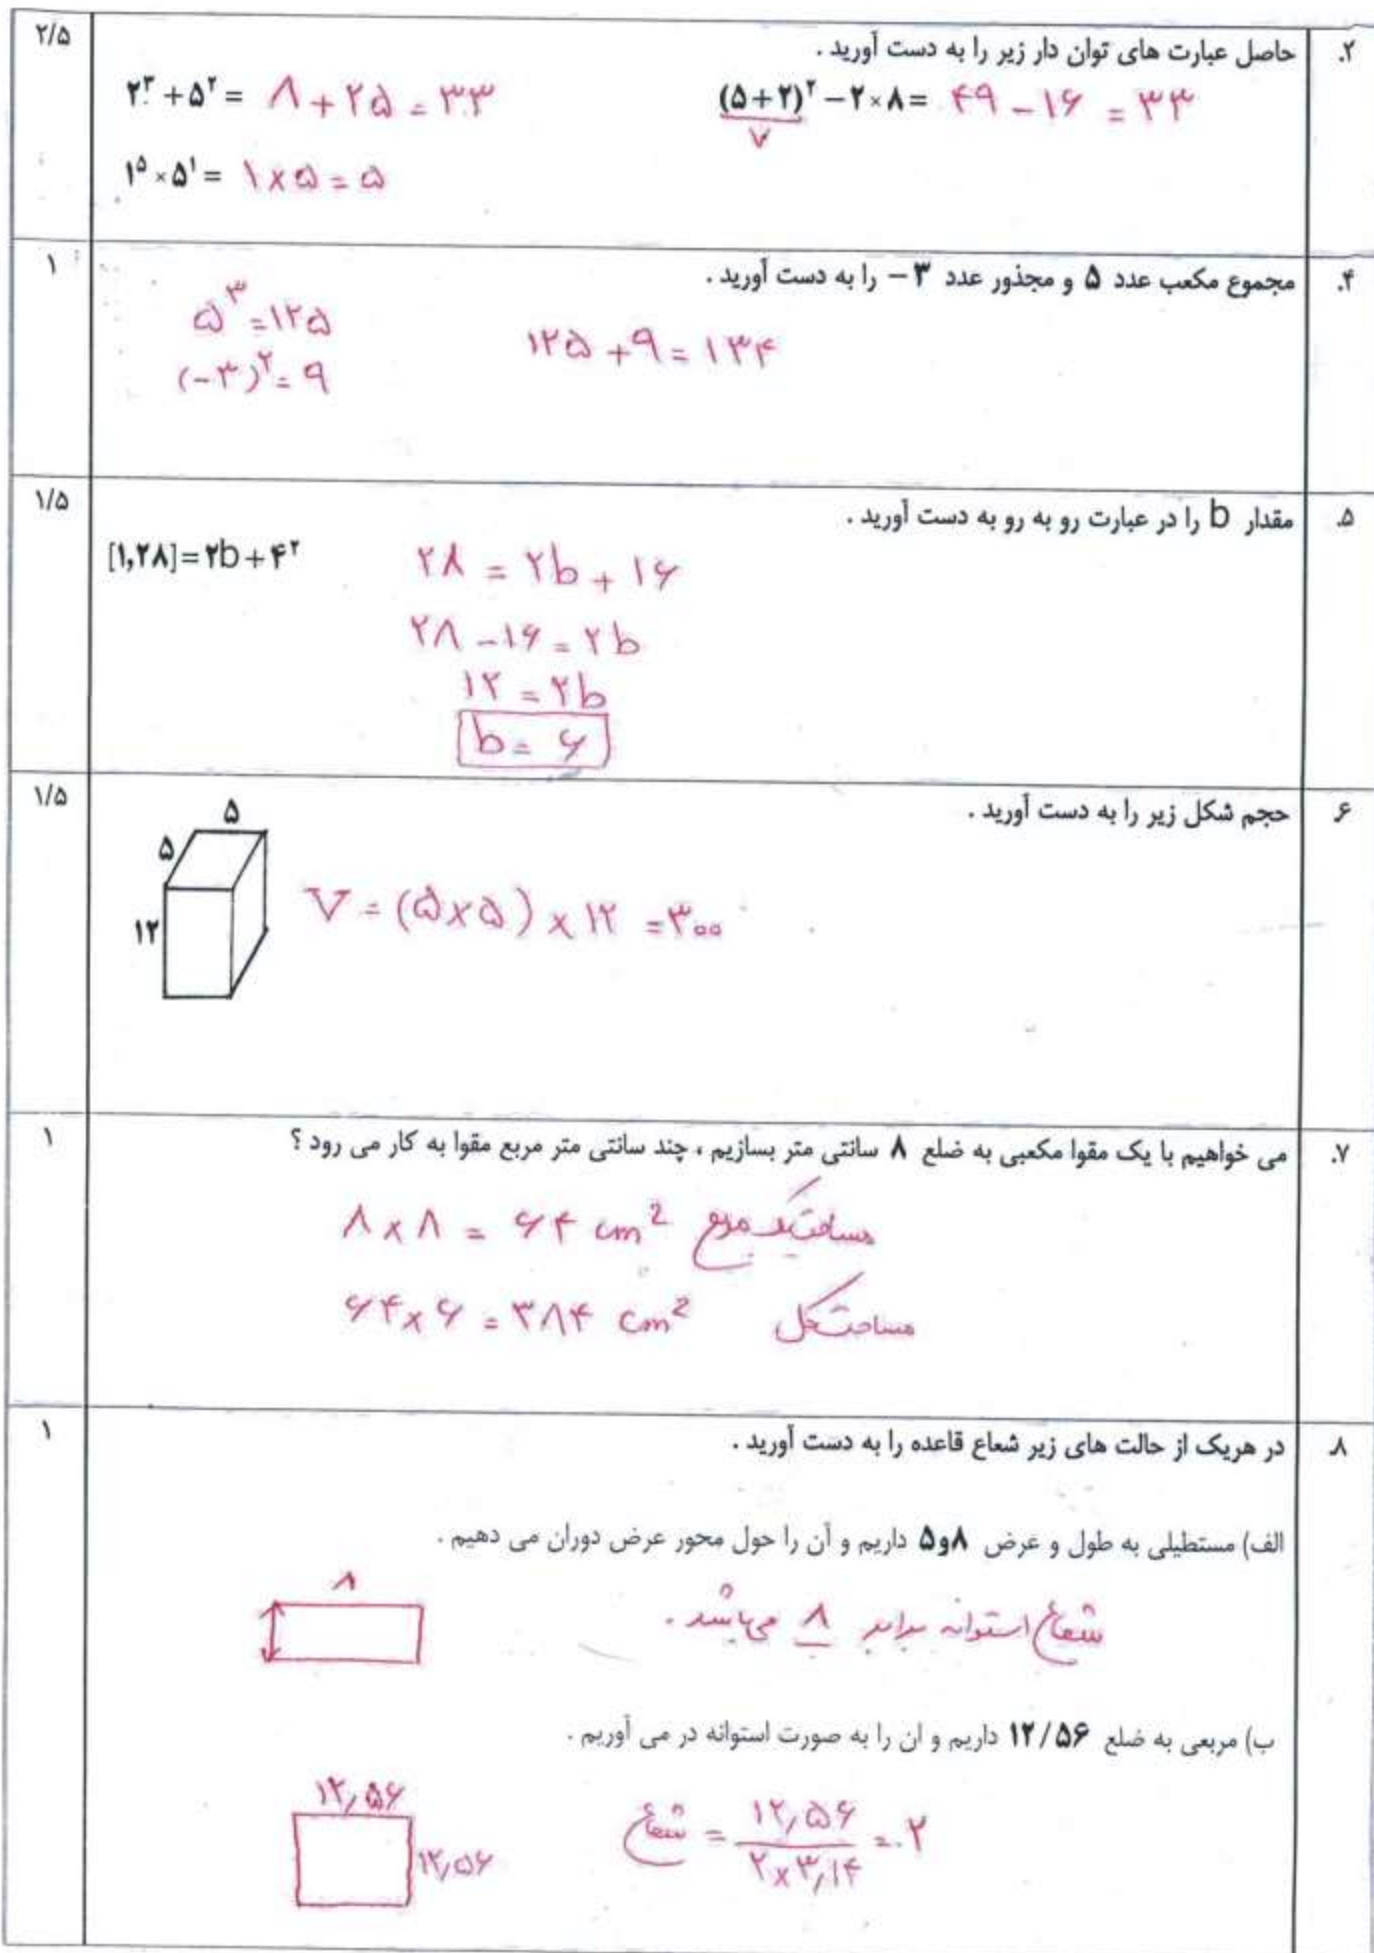 ۲. حاصل عبارت های توان دار زیر را به دست آورید . ۲/۵
۲^۳ + ۵^۲ = ۸ + ۲۵ = ۳۳
(۵+۲)^۲ − ۲×۸ = ۴۹ − ۱۶ = ۳۳
۷
۱^۵ × ۵^۱ = ۱ × ۵ = ۵
۴. مجموع مکعب عدد ۵ و مجذور عدد ۳ − را به دست آورید . ۱
۵^۳ = ۱۲۵
(−۳)^۲ = ۹
۱۲۵ + ۹ = ۱۳۴
۵. مقدار b را در عبارت رو به رو به دست آورید . ۱/۵
[۱,۲۸] = ۲b + ۴^۲
۲۸ = ۲b + ۱۶
۲۸ − ۱۶ = ۲b
۱۲ = ۲b
b = ۶
۶ حجم شکل زیر را به دست آورید . ۱/۵
۵
۵
۱۲
V = (۵×۵) × ۱۲ = ۳۰۰
۷. می خواهیم با یک مقوا مکعبی به ضلع ۸ سانتی متر بسازیم ، چند سانتی متر مربع مقوا به کار می رود ؟ ۱
۸ × ۸ = ۶۴ cm² مساحت یک مربع
۶۴ × ۶ = ۳۸۴ cm² مساحت کل
۸ در هریک از حالت های زیر شعاع قاعده را به دست آورید . ۱
الف) مستطیلی به طول و عرض ۸و۵ داریم و آن را حول محور عرض دوران می دهیم .
۸
شعاع استوانه برابر ۸ می باشد .
ب) مربعی به ضلع ۱۲/۵۶ داریم و ان را به صورت استوانه در می آوریم .
۱۲٫۵۶
۱۲٫۵۶
شعاع = ۱۲٫۵۶ / ۲×۳٫۱۴ = ۲